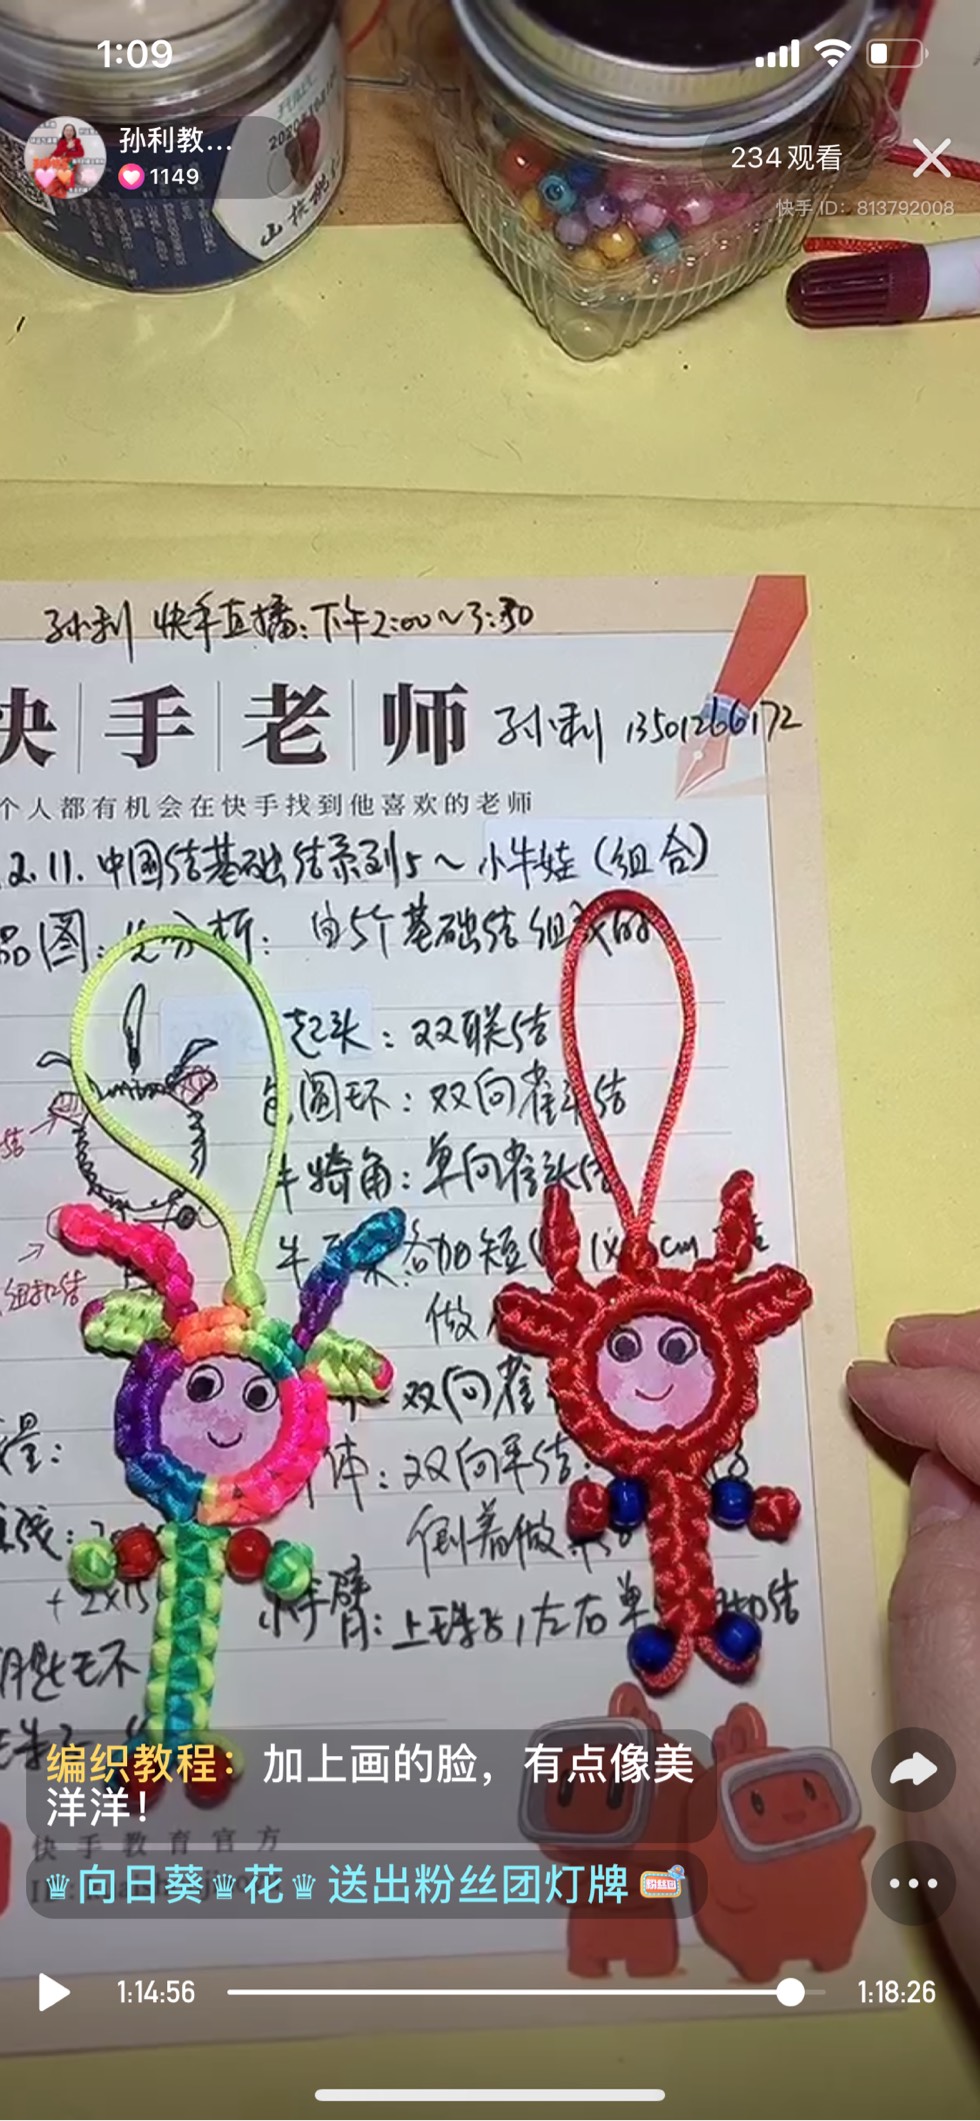 1:09
孙利教...
1149
234观看
快手 ID: 813792008
2020
山
孙利 快手直播:下午2:00~3:30
快手老师
孙利 13501266172
个人都有机会在快手找到他喜欢的老师
2.11.中国结基础结系列5~小牛娃(组合)
品图:先分析:由5个基础结组成的
起头:双联结
包圆环:双向雀头结
结
牛犄角:单向雀头结
牛 各加短
纽扣结
做
双向雀
量:
体:双向平结
线:
倒着做
+2x15
小手臂:上珠子,左右单 扣结
钥匙环
编织教程:加上画的脸,有点像美
洋洋!
快手教育官方
♛向日葵♛花♛ 送出粉丝团灯牌
粉丝团
1:14:56
1:18:26